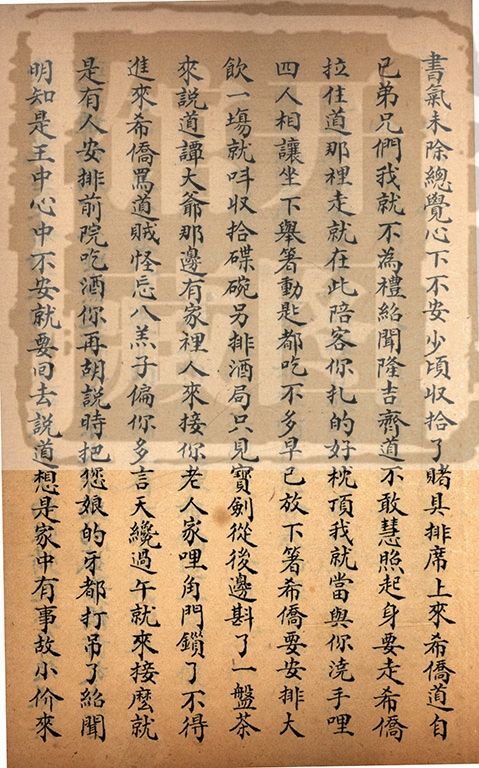 書氣未除總覺心下不安少頃収拾了賭具排席上來希僑道自
已弟兄們我就不為禮紹聞隆吉齊道不敢慧照起身要走希僑
拉住道那裡走就在此陪客你扎的好枕頂我就當與你澆手哩
四人相讓坐下舉箸動匙都吃不多早已放下箸希僑要安排大
飲一塲就呌収拾碟碗另排酒局只見寳劍從後邊斟了一盤茶
來説道譚大爺那邊有家裡人來接你老人家哩角門鎖了不得
進來希僑罵道賊怪忘八羔子偏你多言天纔過午就來接麽就
是有人安排前院吃酒你再胡説時把您娘的牙都打吊了紹聞
明知是王中心中不安就要囘去説道想是家中有事故小价來